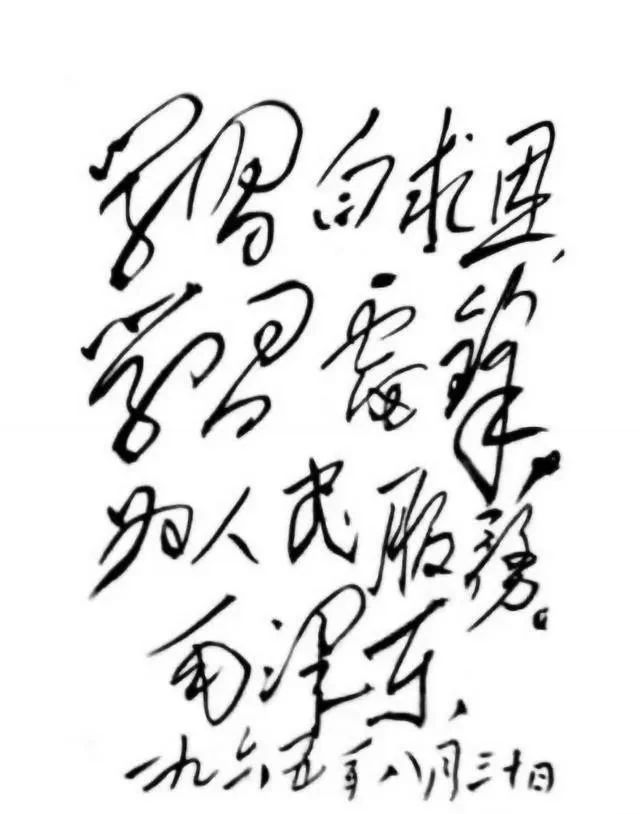 学习白求恩，
学习雷锋，
为人民服务。
毛泽东
一九六五年八月三十日